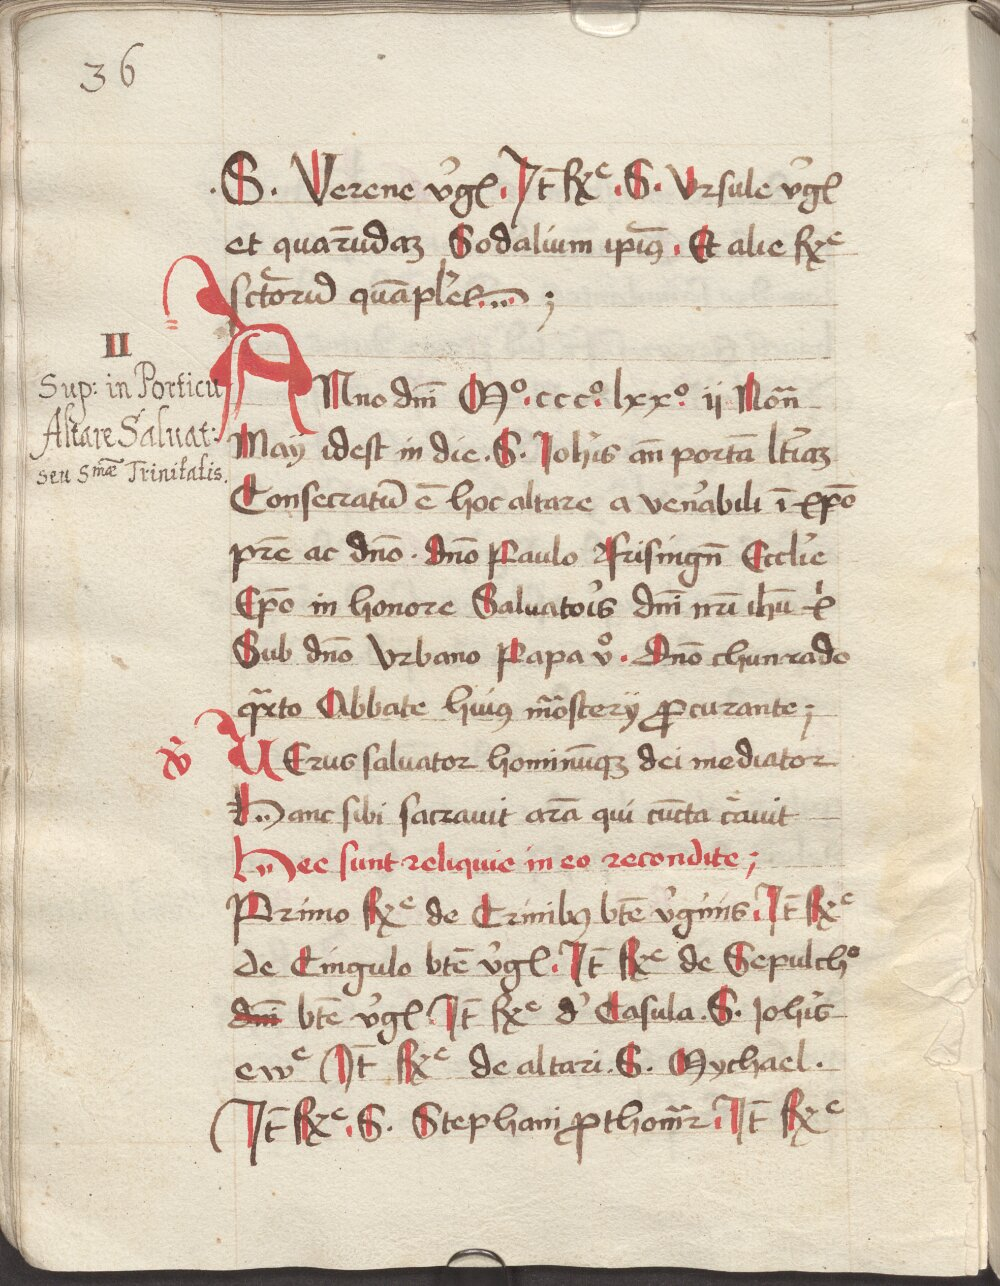 36
.S. Verene v̓gĺ. It̄ Rx̄ᵉ. S. Vrsule v̓gĺ
et quar̄ūdaꝫ Sodalium ip̄iꝰ. Et alie Rx̄ᵉ
sctorū quāpl̓es ;
II
Sup: in Porticu
Altare Saluat:
seu Smæ Trinitatis.
ANno dn̄i Mº. cccº. lxxº. ij Noň
Maÿ idest in die. S. Joh̓is an̄ portā lt̄iaꝫ
Consecratū ē hoc altare a ven̓abili ī xp̄o
pr̄e ac dn̄o. dn̄o Paulo Frisingn̄ Eccl̓ie
Ep̄o in honore Saluato̓is dn̄i nr̄i ih̄u x̄ᶦ
Sub dn̄o Vrbano Papa vº. Dn̄o chunrado
qᷓrto Abbate huiꝰ mōᷓsterÿ ꝓcurante ;
VErus saluator hominūqꝫ dei mediator
Hanc sibi sacrauit arā qui cūcta c̄auit
Hec sunt reliquie in eo recondite ;
Primo Rx̄ᵉ de Crinibꝰ bt̄e v̓ginis. It̄ Rx̄ᵉ
de Cingulo bt̄e v̓gĺ. It̄ Rx̄ᵉ de Sepulchº
dn̄i bt̄e v̓gĺ It̄ Rx̄ᵉ d̓ Casula. S. Joh̓is
ewᵉ It̄ Rx̄ᵉ de altari. S. Mychael.
It̄ Rx̄ᵉ. S. Stephani ꝓthom̄ᷓr. It̄ Rx̄ᵉ